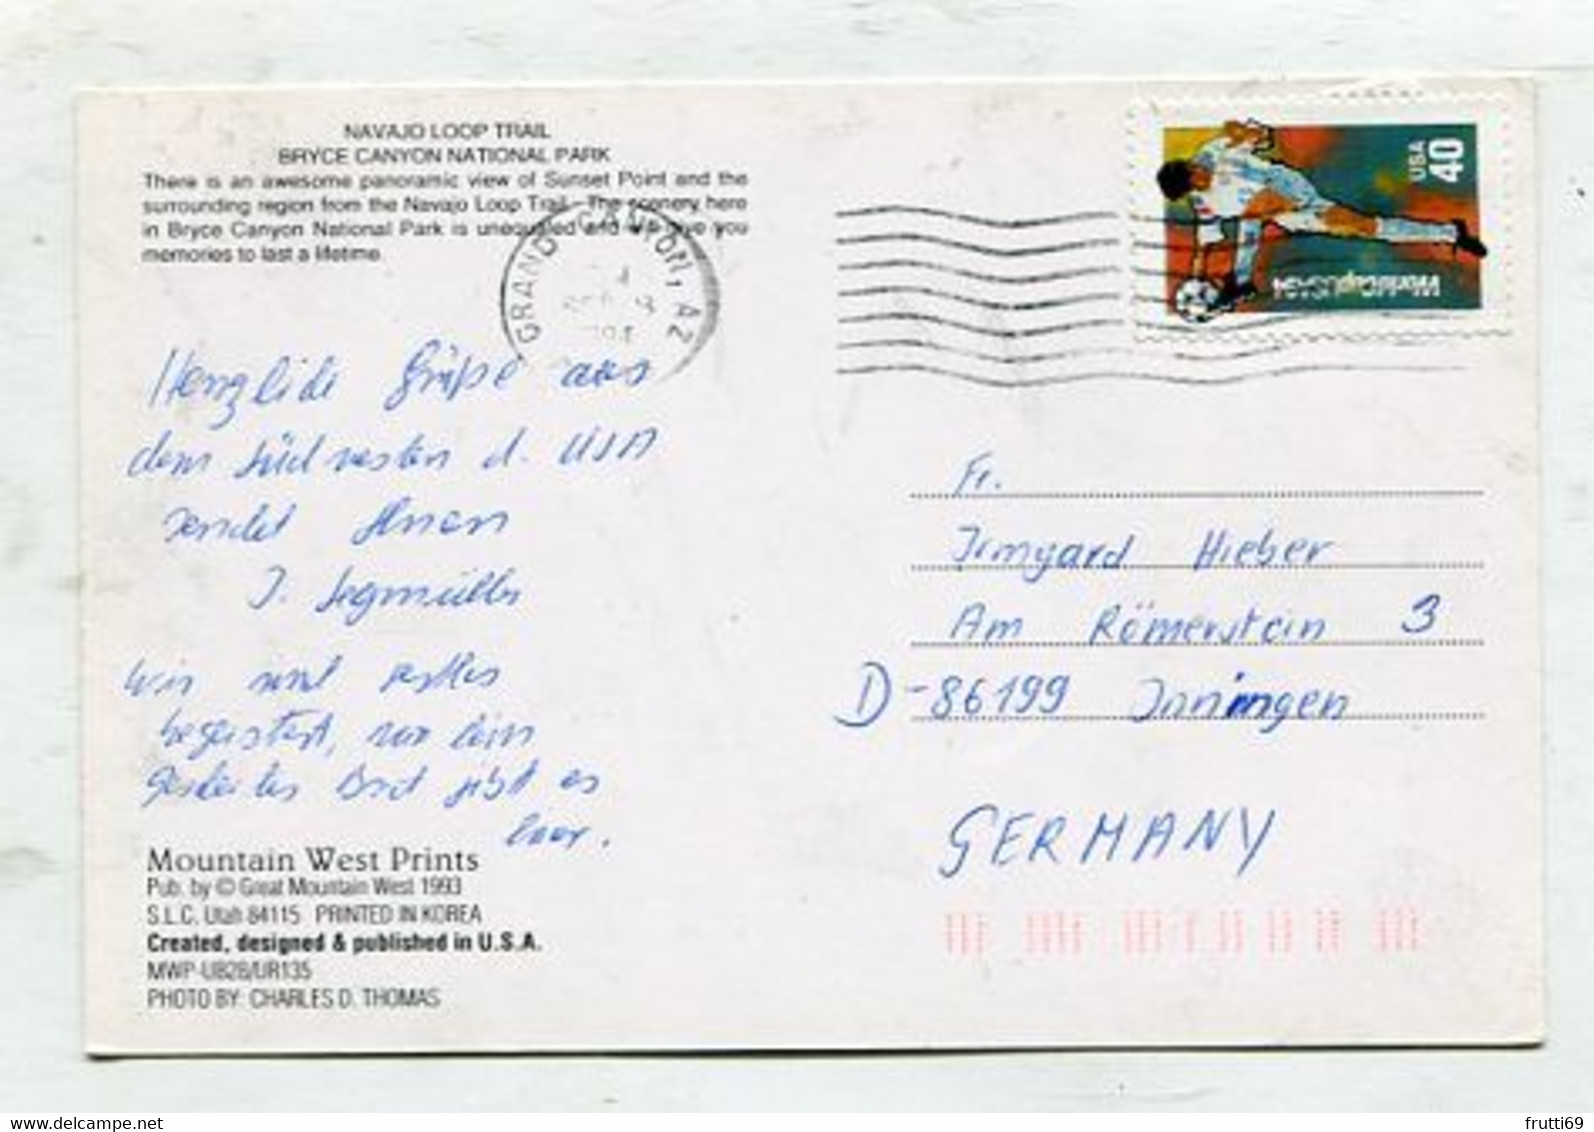 NAVAJO LOOP TRAIL
BRYCE CANYON NATIONAL PARK
There is an awesome panoramic view of Sunset Point and the
surrounding region from the Navajo Loop Trail. The scenery here
in Bryce Canyon National Park is unequaled and will give you
memories to last a lifetime.
GRAND CANYON, AZ
USA
40
WorldCupUSA94
Herzliche Grüße aus
dem Südwesten d. USA
sendet Ihnen
J. Segmüller
Wir sind restlos
begeistert, nur kein
gescheites Brot gibt es
hier.
Fr.
Irmgard Hieber
Am Römerstein 3
D-86199 Inningen
GERMANY
Mountain West Prints
Pub. by © Great Mountain West 1993
S.L.C. Utah 84115 PRINTED IN KOREA
Created, designed & published in U.S.A.
MWP-UB28/UR135
PHOTO BY: CHARLES D. THOMAS
www.delcampe.net
frutti69